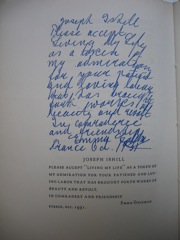 Joseph Ishill
Please accept
"Living My Life"
as a token of
my admiration
for your patient
and loving labor
that has brought
forth works of
beauty and revolt.
In comradeship
and friendship
Emma Goldman
France Oct. 1931.
JOSEPH ISHILL
PLEASE ACCEPT "LIVING MY LIFE" AS A TOKEN OF
MY ADMIRATION FOR YOUR PATIENCE AND LOV
ING LABOR THAT HAS BROUGHT FORTH WORKS OF
BEAUTY AND REVOLT.
IN COMRADESHIP AND FRIENDSHIP
EMMA GOLDMAN
FRANCE, OCT. 1931.